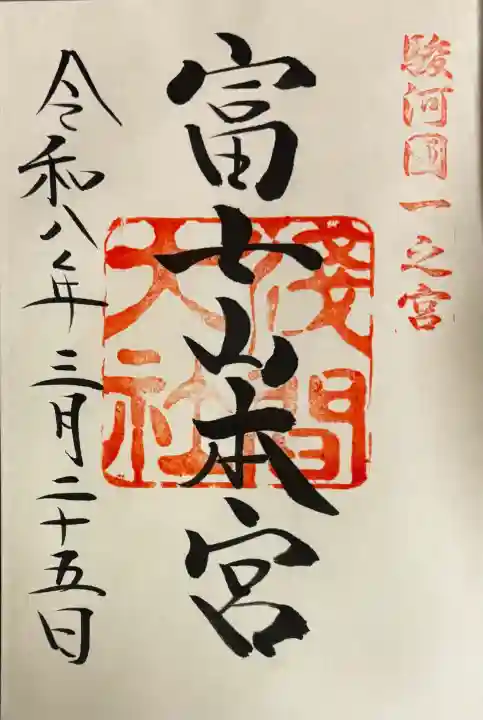 駿河國一之宮
富士山本宮
淺間大社
令和八年三月二十五日